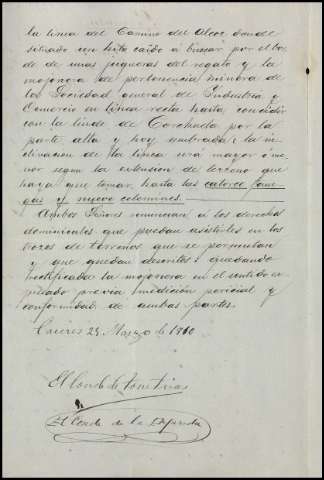 la linea del Camino del Alcor, donde
situado un hito caido á buscar por el bor
de de unas higueras del regato y la
mojonera de pertenencia minera de
la Sociedad General de Industria y
Comercio en linea recta hasta coincidir
con la linde de Corchada por la
parte alta y hoy sembrada; la in
clinacion de la linea será mayor ó me
nor segun la extension de terreno que
haya que tomar hasta las catorce fane
gas y nueve celemines.
Ambos Señores renuncian á los derechos
dominicales que puedan asistirles en los
trozos de terrenos que se permutan
y que quedan descritos; quedando
rectificada la mojonera en el sentido ex
presado previa medicion pericial y
conformidad de ambas partes.
Caceres 25 Marzo de 1910
El Conde de Torre Arias
El Conde de la